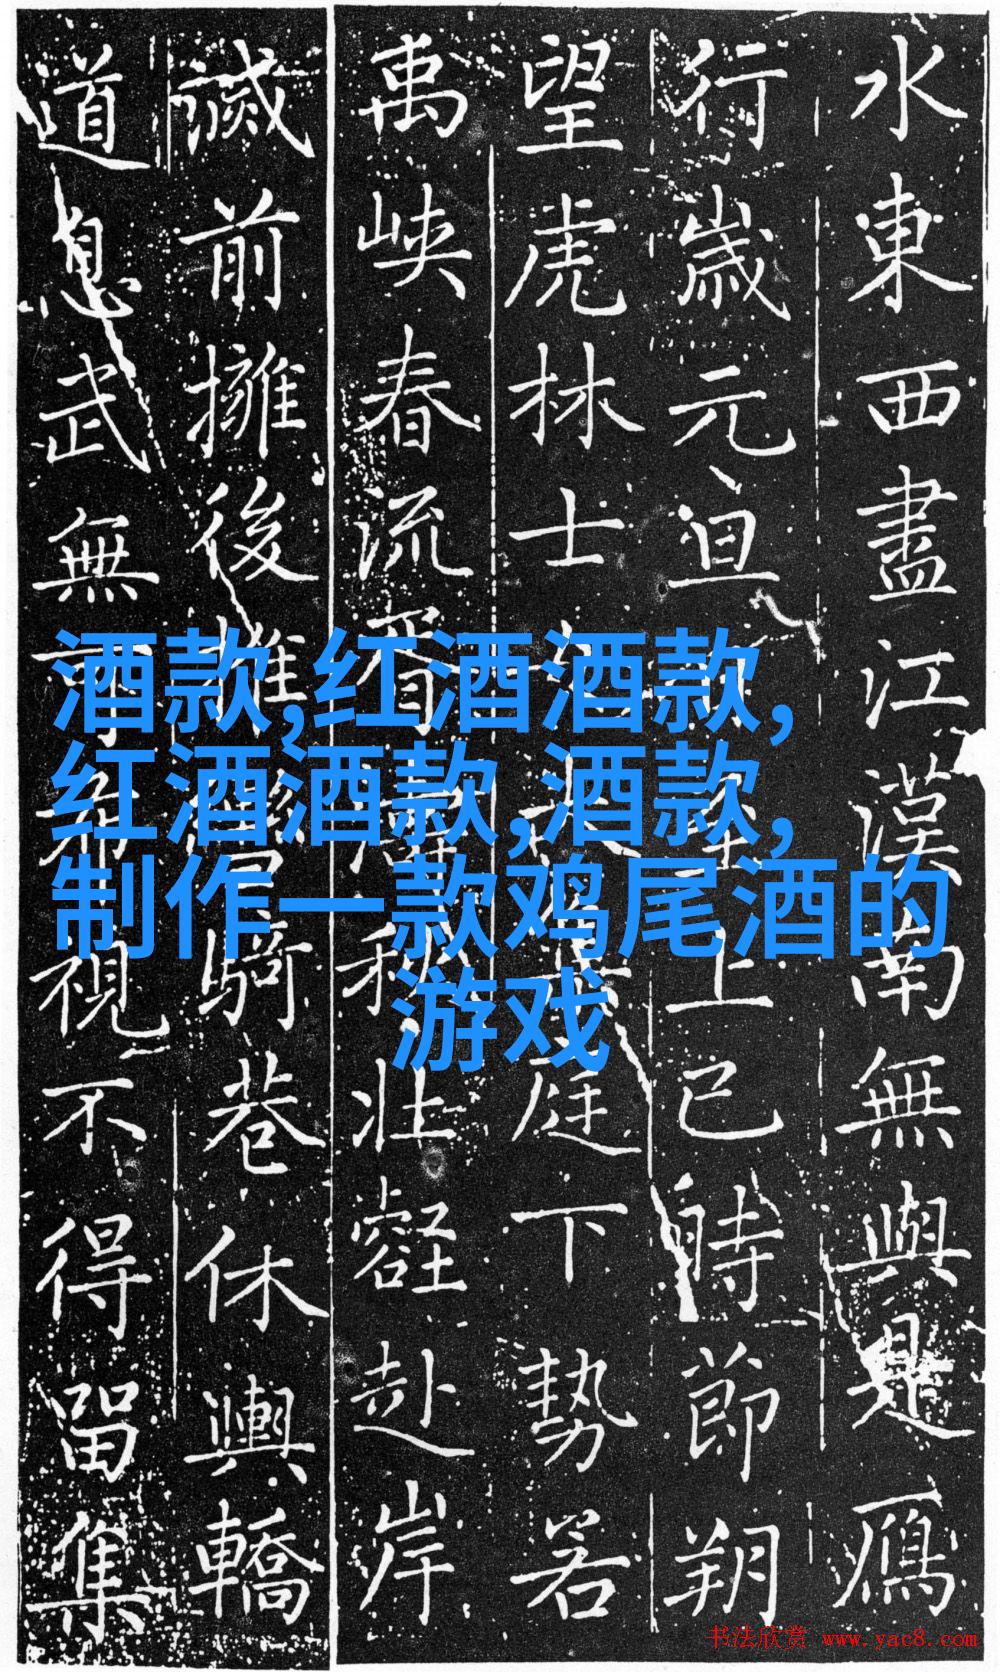 水東西盡江漢南無與是鴈
行歲元旦上巳時節朔
望虎林士庭下勢若
禹峽春流胥秋壯壑赴岸
滅前擁後騎巷休輿轎
道息武無視不得留集
酒款,红酒酒款,
红酒酒款,酒款,
制作一款鸡尾酒的
游戏
书法欣赏 www.yac8.com